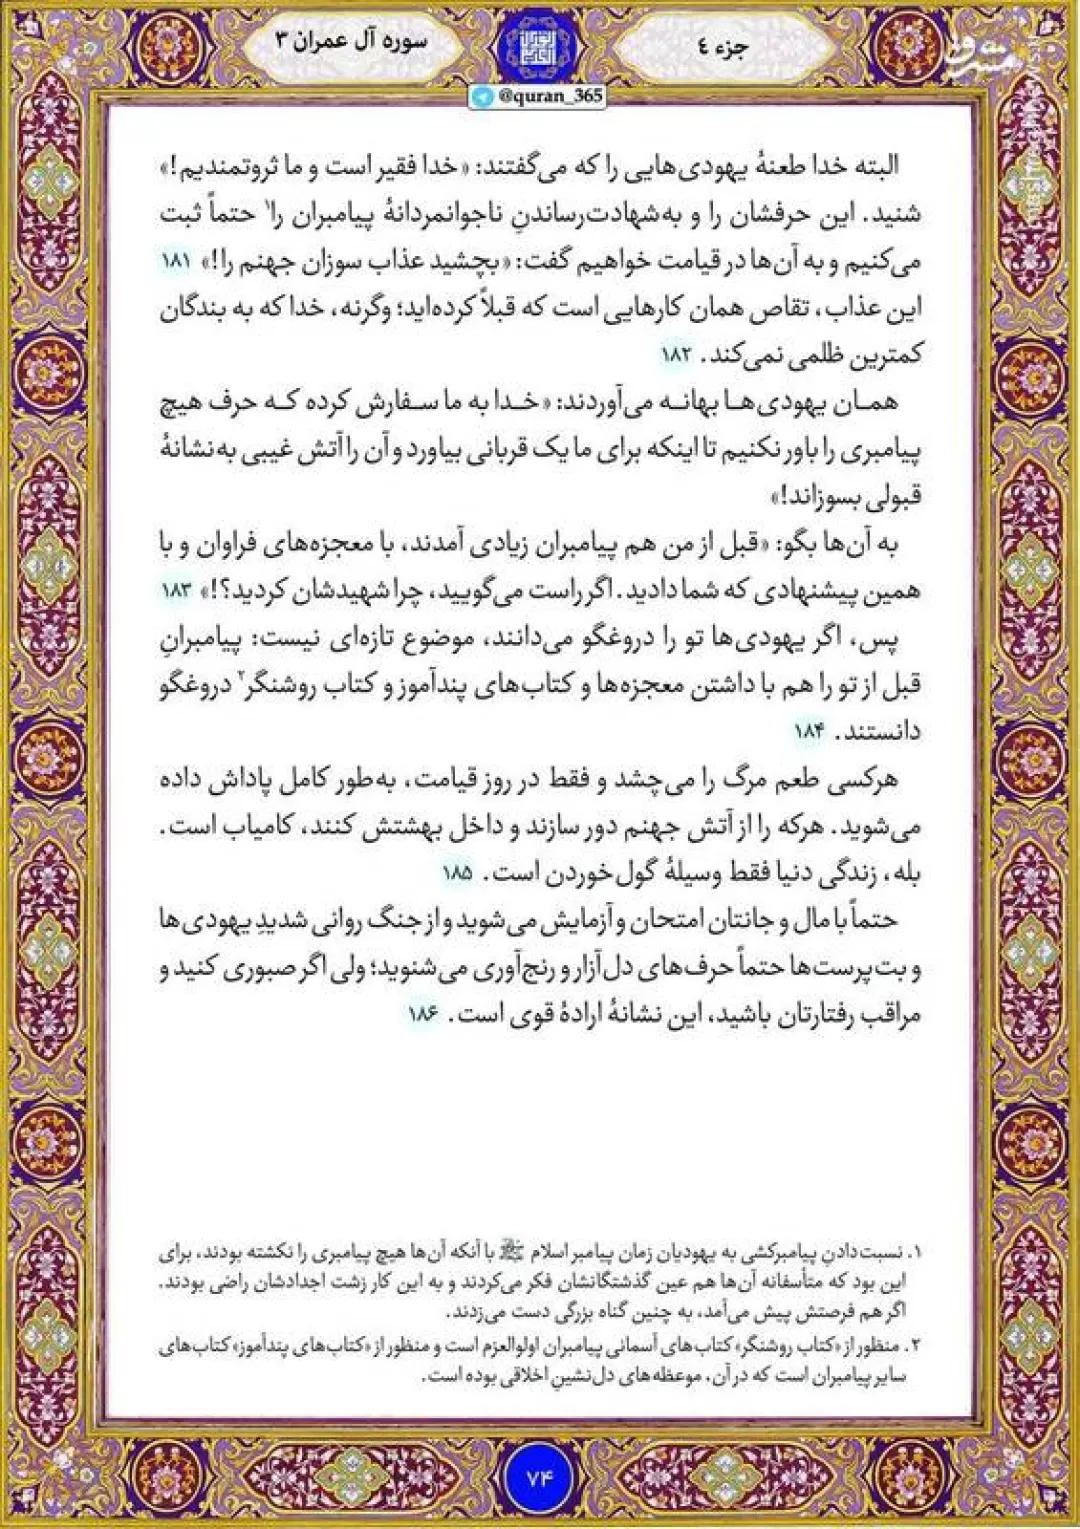 جزء ٤
سوره آل عمران ٣
@quran_365
مشرق
البته خدا طعنهٔ یهودی‌هایی را که می‌گفتند: «خدا فقیر است و ما ثروتمندیم!»
شنید. این حرفشان را و به‌شهادت‌رساندنِ ناجوانمردانهٔ پیامبران را۱ حتماً ثبت
می‌کنیم و به آن‌ها در قیامت خواهیم گفت: «بچشید عذاب سوزان جهنم را!» ۱۸۱
این عذاب، تقاص همان کارهایی است که قبلاً کرده‌اید؛ وگرنه، خدا که به بندگان
کمترین ظلمی نمی‌کند. ۱۸۲
همان یهودی‌ها بهانه می‌آوردند: «خدا به ما سفارش کرده که حرف هیچ
پیامبری را باور نکنیم تا اینکه برای ما یک قربانی بیاورد و آن را آتش غیبی به نشانهٔ
قبولی بسوزاند!»
به آن‌ها بگو: «قبل از من هم پیامبران زیادی آمدند، با معجزه‌های فراوان و با
همین پیشنهادی که شما دادید. اگر راست می‌گویید، چرا شهیدشان کردید؟!» ۱۸۳
پس، اگر یهودی‌ها تو را دروغگو می‌دانند، موضوع تازه‌ای نیست: پیامبرانِ
قبل از تو را هم با داشتن معجزه‌ها و کتاب‌های پندآموز و کتاب روشنگر۲ دروغگو
دانستند. ۱۸۴
هرکسی طعم مرگ را می‌چشد و فقط در روز قیامت، به‌طور کامل پاداش داده
می‌شوید. هرکه را از آتش جهنم دور سازند و داخل بهشتش کنند، کامیاب است.
بله، زندگی دنیا فقط وسیلهٔ گول‌خوردن است. ۱۸۵
حتماً با مال و جانتان امتحان و آزمایش می‌شوید و از جنگ روانی شدیدِ یهودی‌ها
و بت‌پرست‌ها حتماً حرف‌های دل‌آزار و رنج‌آوری می‌شنوید؛ ولی اگر صبوری کنید و
مراقب رفتارتان باشید، این نشانهٔ ارادهٔ قوی است. ۱۸۶
۱. نسبت‌دادنِ پیامبرکشی به یهودیان زمان پیامبر اسلام ﷺ با آنکه آن‌ها هیچ پیامبری را نکشته بودند، برای
این بود که متأسفانه آن‌ها هم عین گذشتگانشان فکر می‌کردند و به این کار زشت اجدادشان راضی بودند.
اگر هم فرصتش پیش می‌آمد، به چنین گناه بزرگی دست می‌زدند.
۲. منظور از «کتاب روشنگر» کتاب‌های آسمانی پیامبران اولوالعزم است و منظور از «کتاب‌های پندآموز» کتاب‌های
سایر پیامبران است که در آن، موعظه‌های دل‌نشینِ اخلاقی بوده است.
۷۴